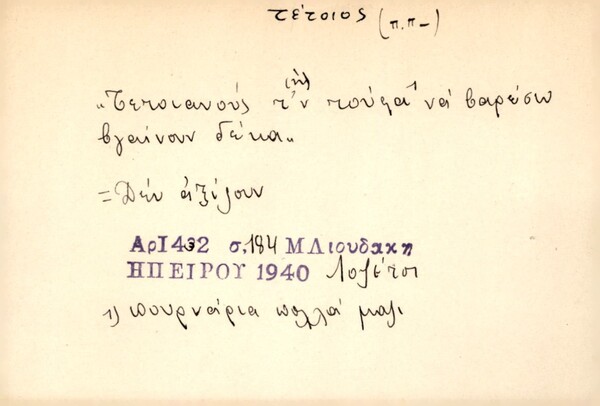 τέτοιος (π.π-)
(1)
„Τετοιανούς τ'ν τούφα νά βαρέσω
βγαίνουν δέκα„
= Δέν ἀξίζουν
Αρ1432 σ.184 ΜΛιουδακη
ΗΠΕΙΡΟΥ 1940 Λοζέτσι
1) πουρνάρια πολλά μαζι